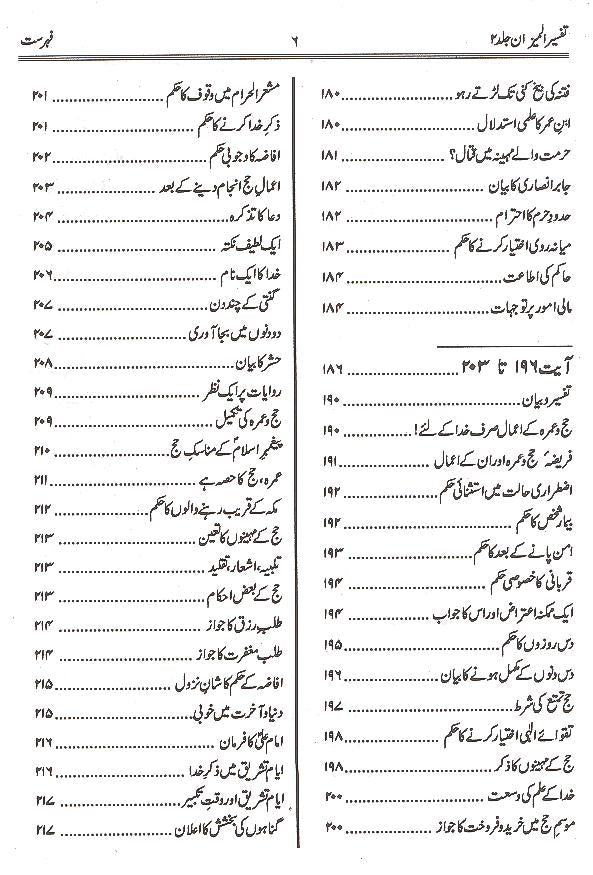 تفسیر المیزان جلد ۲
۶
فہرست
فتنہ کی بیخ کنی تک لڑتے رہو ۱۸۰
ابن عمر کا علمی استدلال ۱۸۰
حرمت والے مہینہ میں قتال؟ ۱۸۱
جابر انصاری کا بیان ۱۸۲
حدودِ حرم کا احترام ۱۸۲
میانہ روی اختیار کرنے کا حکم ۱۸۳
حاکم کی اطاعت ۱۸۴
مالی امور پر توجہات ۱۸۴
آیت ۱۹۶ تا ۲۰۳ ۱۸۶
تفسیر و بیان ۱۹۰
حج و عمرہ کے اعمال صرف خدا کے لئے! ۱۹۰
فریضۂ حج و عمرہ اور ان کے اعمال ۱۹۱
اضطراری حالت میں استثنائی حکم ۱۹۲
بیمار شخص کا حکم ۱۹۲
امن پانے کے بعد کا حکم ۱۹۳
قربانی کا خصوصی حکم ۱۹۴
ایک ممکنہ اعتراض اور اس کا جواب ۱۹۴
دس روزوں کا حکم ۱۹۵
دس دنوں کے مکمل ہونے کا بیان ۱۹۶
حج تمتع کی شرط ۱۹۷
تقوائے الٰہی اختیار کرنے کا حکم ۱۹۸
حج کے مہینوں کا ذکر ۱۹۸
خدا کے علم کی وسعت ۲۰۰
موسمِ حج میں خرید و فروخت کا جواز ۲۰۰
مشعر الحرام میں وقوف کا حکم ۲۰۱
ذکرِ خدا کرنے کا حکم ۲۰۱
افاضہ کا وجوبی حکم ۲۰۲
اعمالِ حج انجام دینے کے بعد ۲۰۳
دعا کا تذکرہ ۲۰۴
ایک لطیف نکتہ ۲۰۵
خدا کا ایک نام ۲۰۶
گنتی کے چند دن ۲۰۷
دو دنوں میں بجا آوری ۲۰۷
حشر کا بیان ۲۰۸
روایات پر ایک نظر ۲۰۹
حج و عمرہ کی تکمیل ۲۰۹
پیغمبرِ اسلامؐ کے مناسکِ حج ۲۱۰
عمرہ، حج کا حصہ ہے ۲۱۱
مکہ کے قریب رہنے والوں کا حکم ۲۱۲
حج کے مہینوں کا تعین ۲۱۳
تلبیہ، اشعار، تقلید ۲۱۳
حج کے بعض احکام ۲۱۳
طلبِ رزق کا جواز ۲۱۴
طلبِ مغفرت کا جواز ۲۱۴
افاضہ کے حکم کا شانِ نزول ۲۱۵
دنیا و آخرت میں خوبی ۲۱۵
امام علیؑ کا فرمان ۲۱۶
ایامِ تشریق میں ذکرِ خدا ۲۱۶
ایامِ تشریق اور وقتِ تکبیر ۲۱۷
گناہوں کی بخشش کا اعلان ۲۱۷